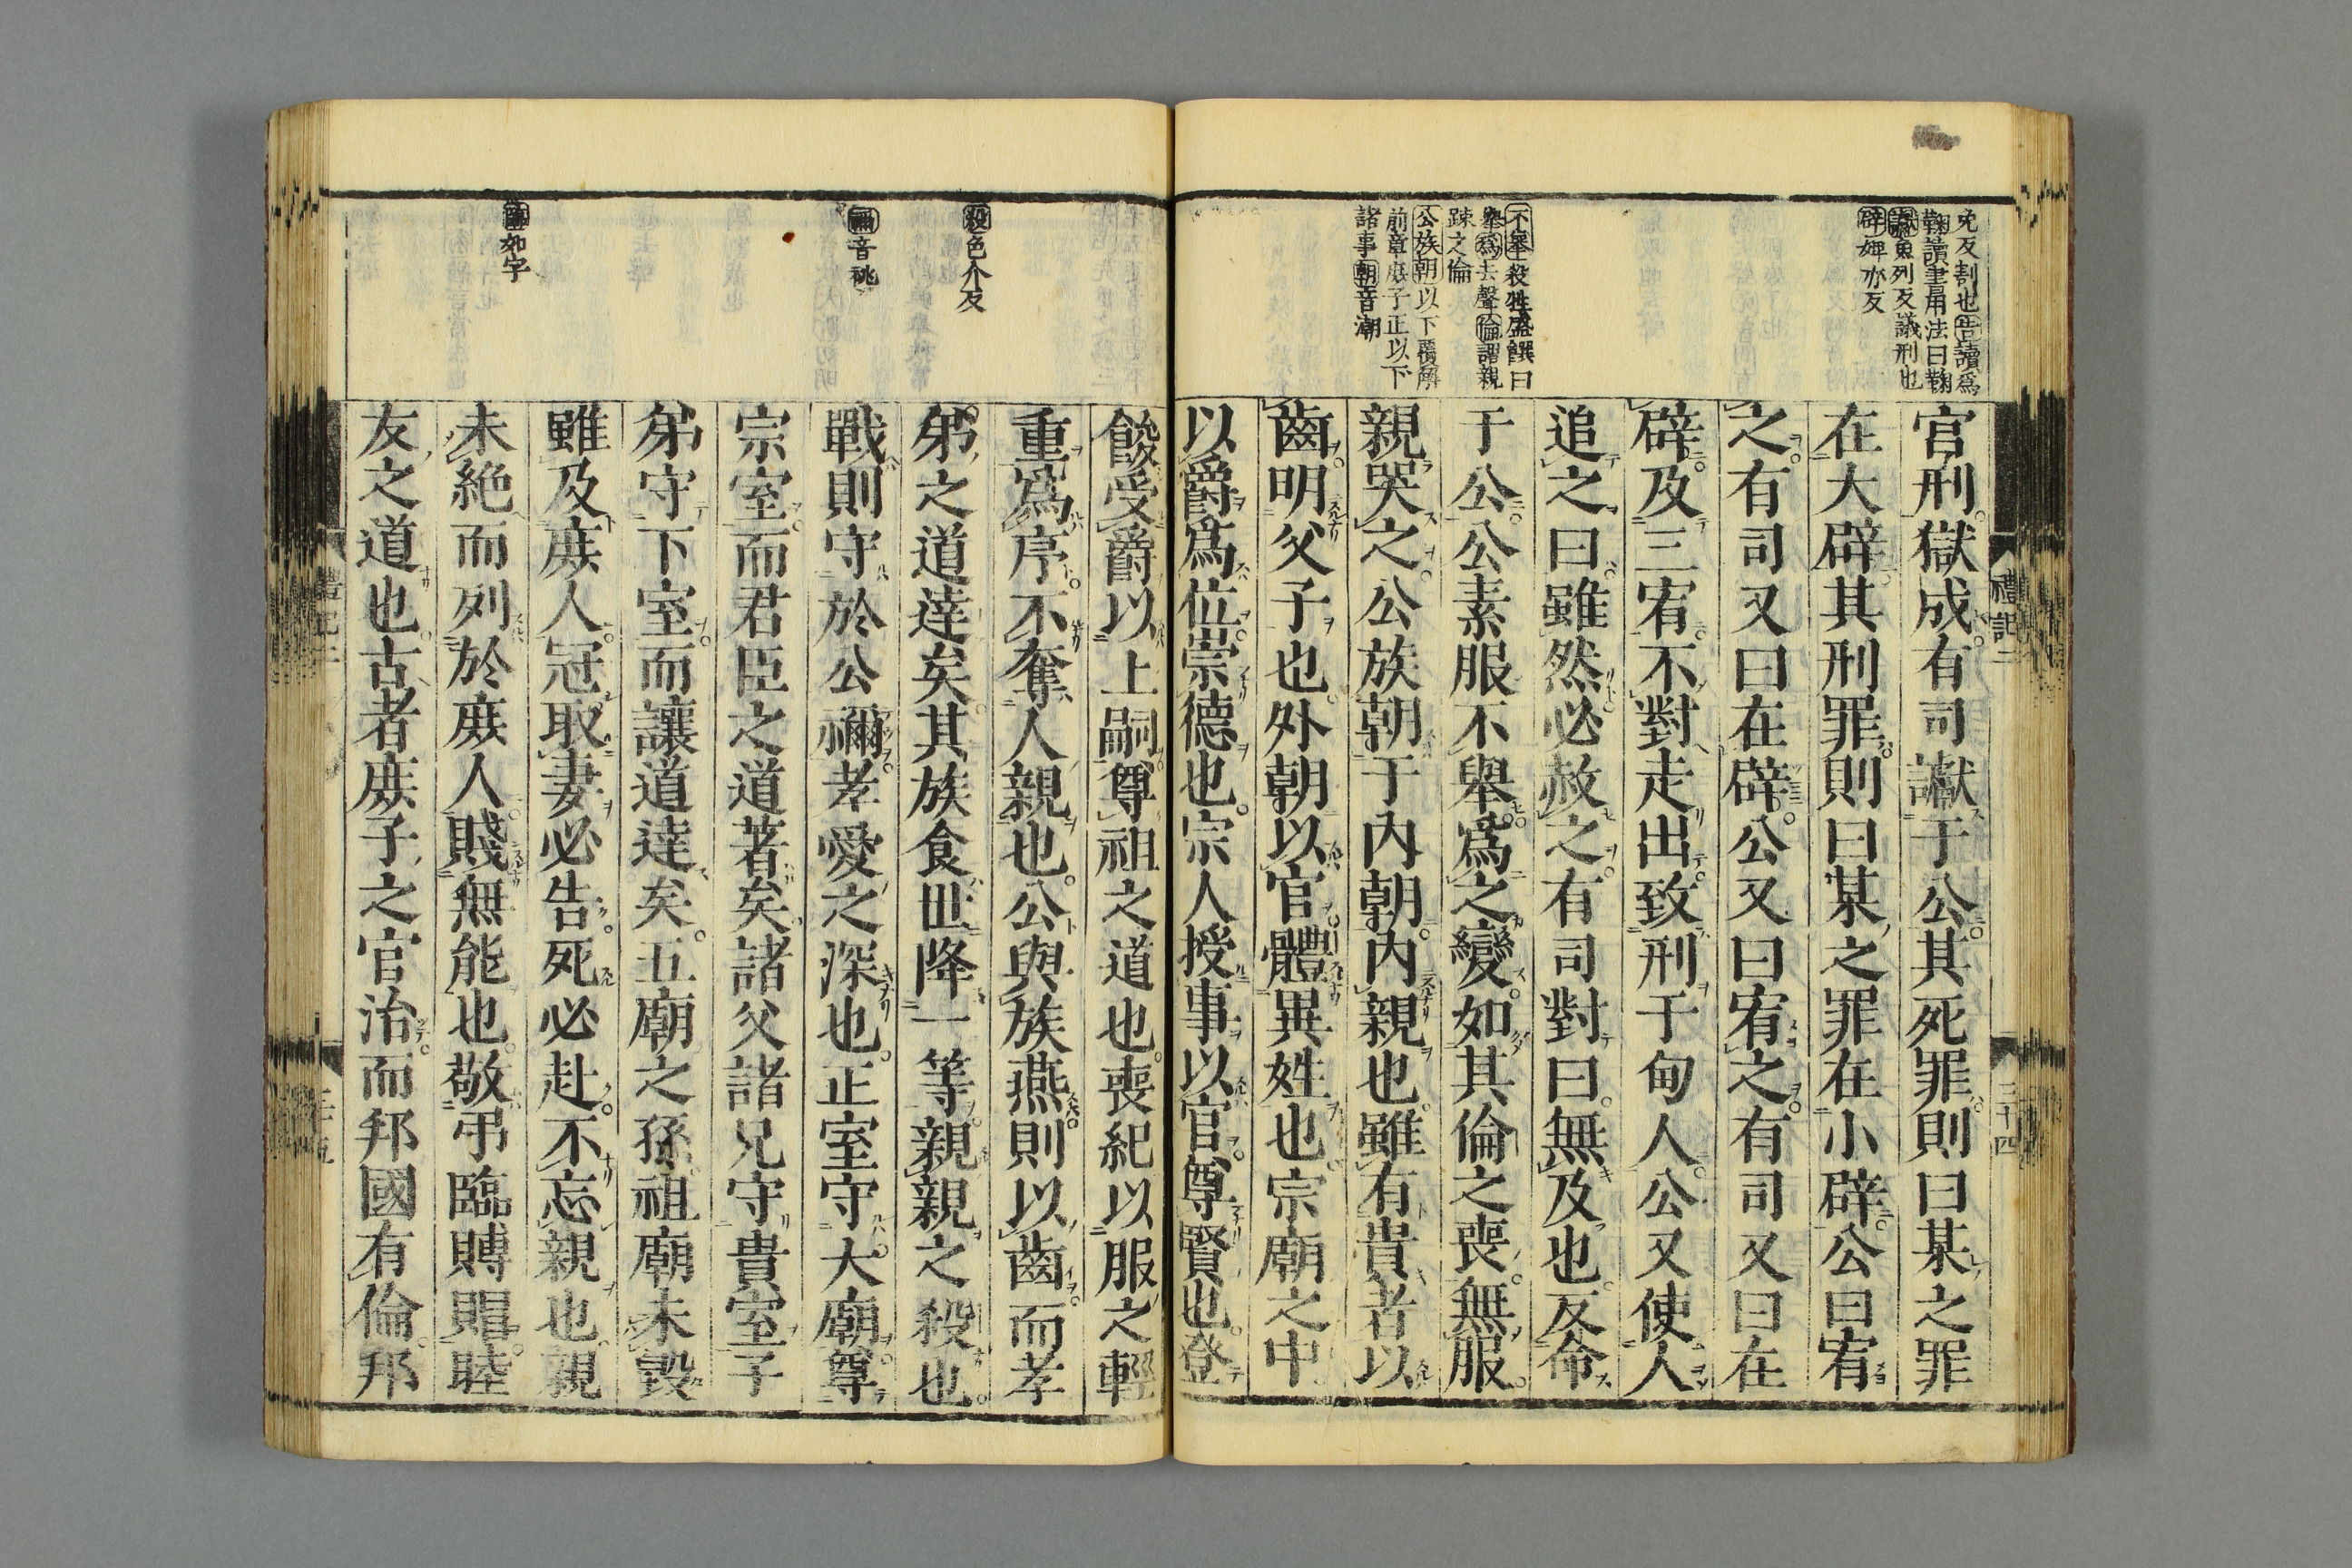 免反割也告讀爲
鞠讀書用法曰鞠
讞魚列反議刑也
辟婢亦反
不舉殺牲盛饌曰
舉爲去聲倫謂親
疎之倫
公族朝以下覆解
前章庶子正以下
諸事朝音潮
禮記二
三十四
官刑。獄成。有司讞于公。其死罪。則曰某之罪
在大辟。其刑罪。則曰某之罪在小辟。公曰宥
之。有司又曰在辟。公又曰宥之。有司又曰在
辟。及三宥。不對走出。致刑于甸人。公又使人
追之曰。雖然。必赦之。有司對曰。無及也。反命
于公。公素服不舉。爲之變。如其倫之喪。無服。
親哭之。公族朝于內朝。內親也。雖有貴者以
齒。明父子也。外朝以官。體異姓也。宗廟之中
以爵爲位。崇德也。宗人授事以官。尊賢也。登
餕受爵以上嗣。尊祖之道也。喪紀以服之輕
重爲序。不奪人親也。公與族燕。則以齒。而孝
弟之道達矣。其族食世降一等。親親之殺也。
戰則守於公禰。孝愛之深也。正室守大廟。尊
宗室。而君臣之道著矣。諸父諸兄守貴室。子
弟守下室。而讓道達矣。五廟之孫。祖廟未毀
雖及庶人。冠取妻必告。死必赴。不忘親也。親
未絕而列於庶人。賤無能也。敬弔臨賻賵。睦
友之道也。古者庶子之官治。而邦國有倫。邦
殺色介反
音祧
如字
禮記二
三十五